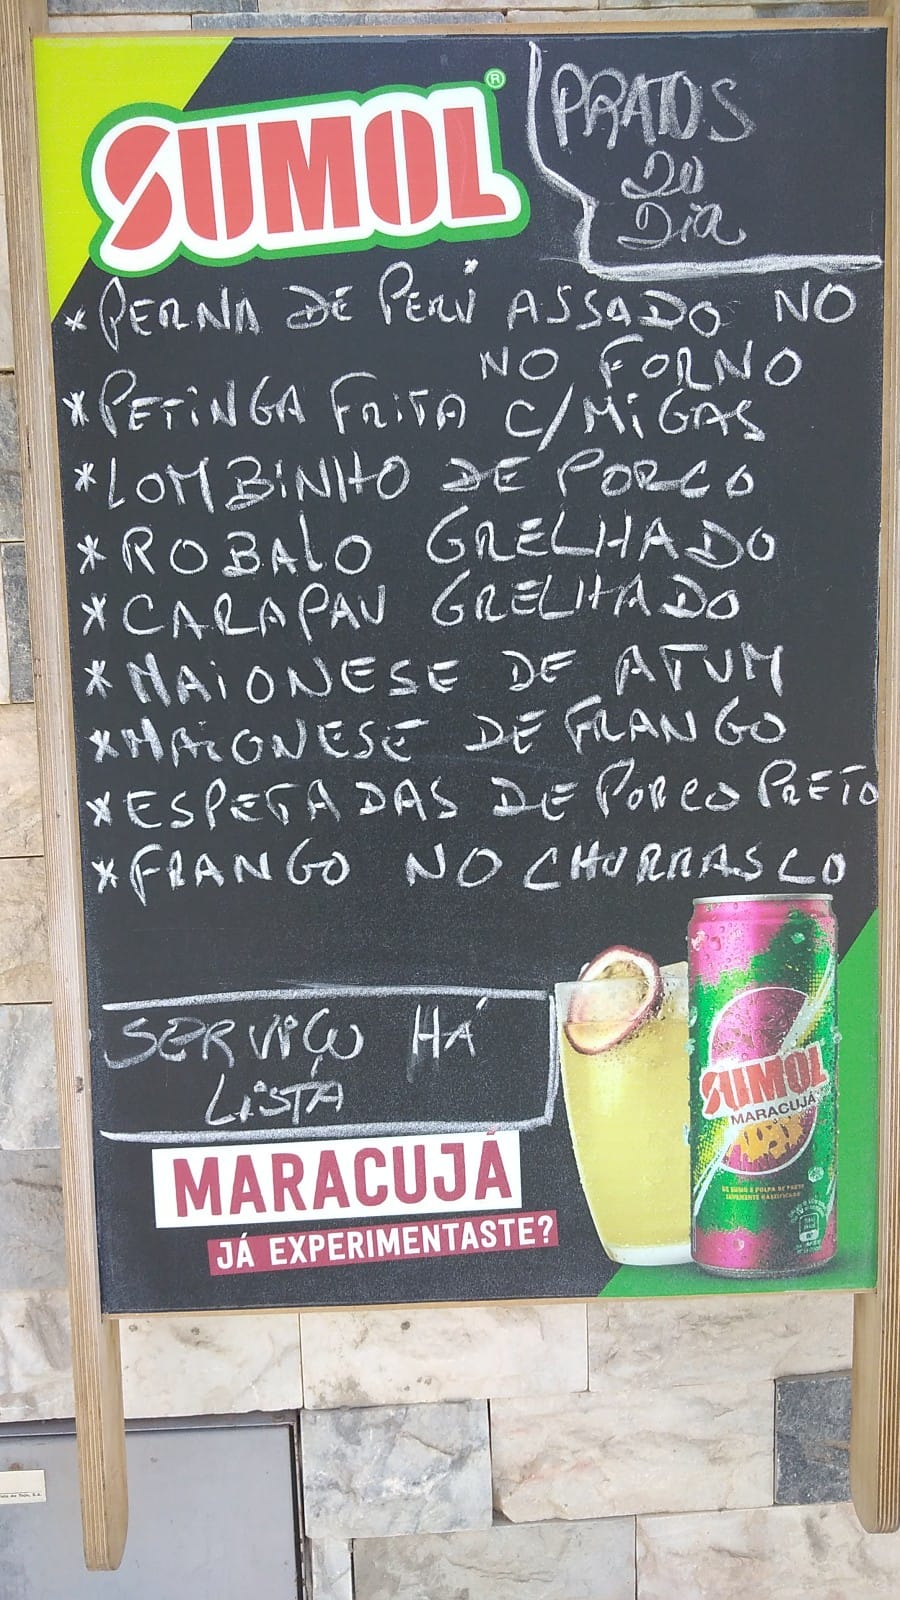 SUMOL®
PRATOS
DO
DIA
*PERNA DE PERÚ ASSADO NO
NO FORNO
*PETINGA FRITA C/MIGAS
*LOMBINHO DE PORCO
*ROBALO GRELHADO
*CARAPAU GRELHADO
*MAIONESE DE ATUM
*MAIONESE DE FRANGO
*ESPETADAS DE PORCO PRETO
*FRANGO NO CHURRASCO
SERVIÇO HÁ
LISTA
MARACUJÁ
JÁ EXPERIMENTASTE?
SUMOL
MARACUJÁ